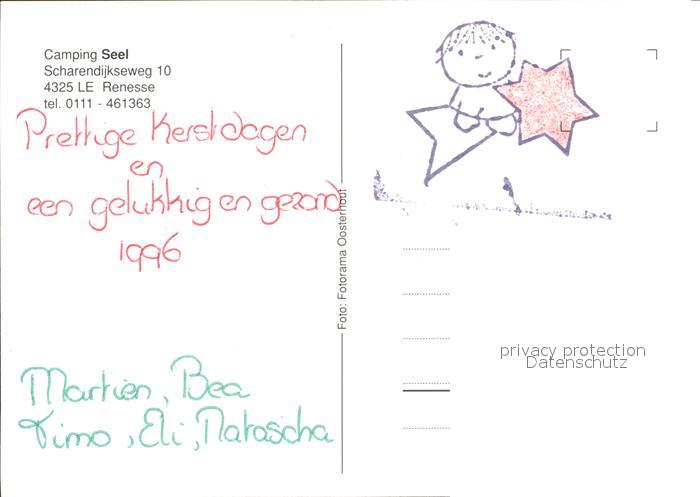 Camping Seel
Scharendijkseweg 10
4325 LE Renesse
tel. 0111 - 461363
Prettige Kerstdagen
en
een gelukkig en gezond
1996
Martien, Bea
Timo, Eli, Natascha
Foto: Fotorama Oosterhout
privacy protection
Datenschutz